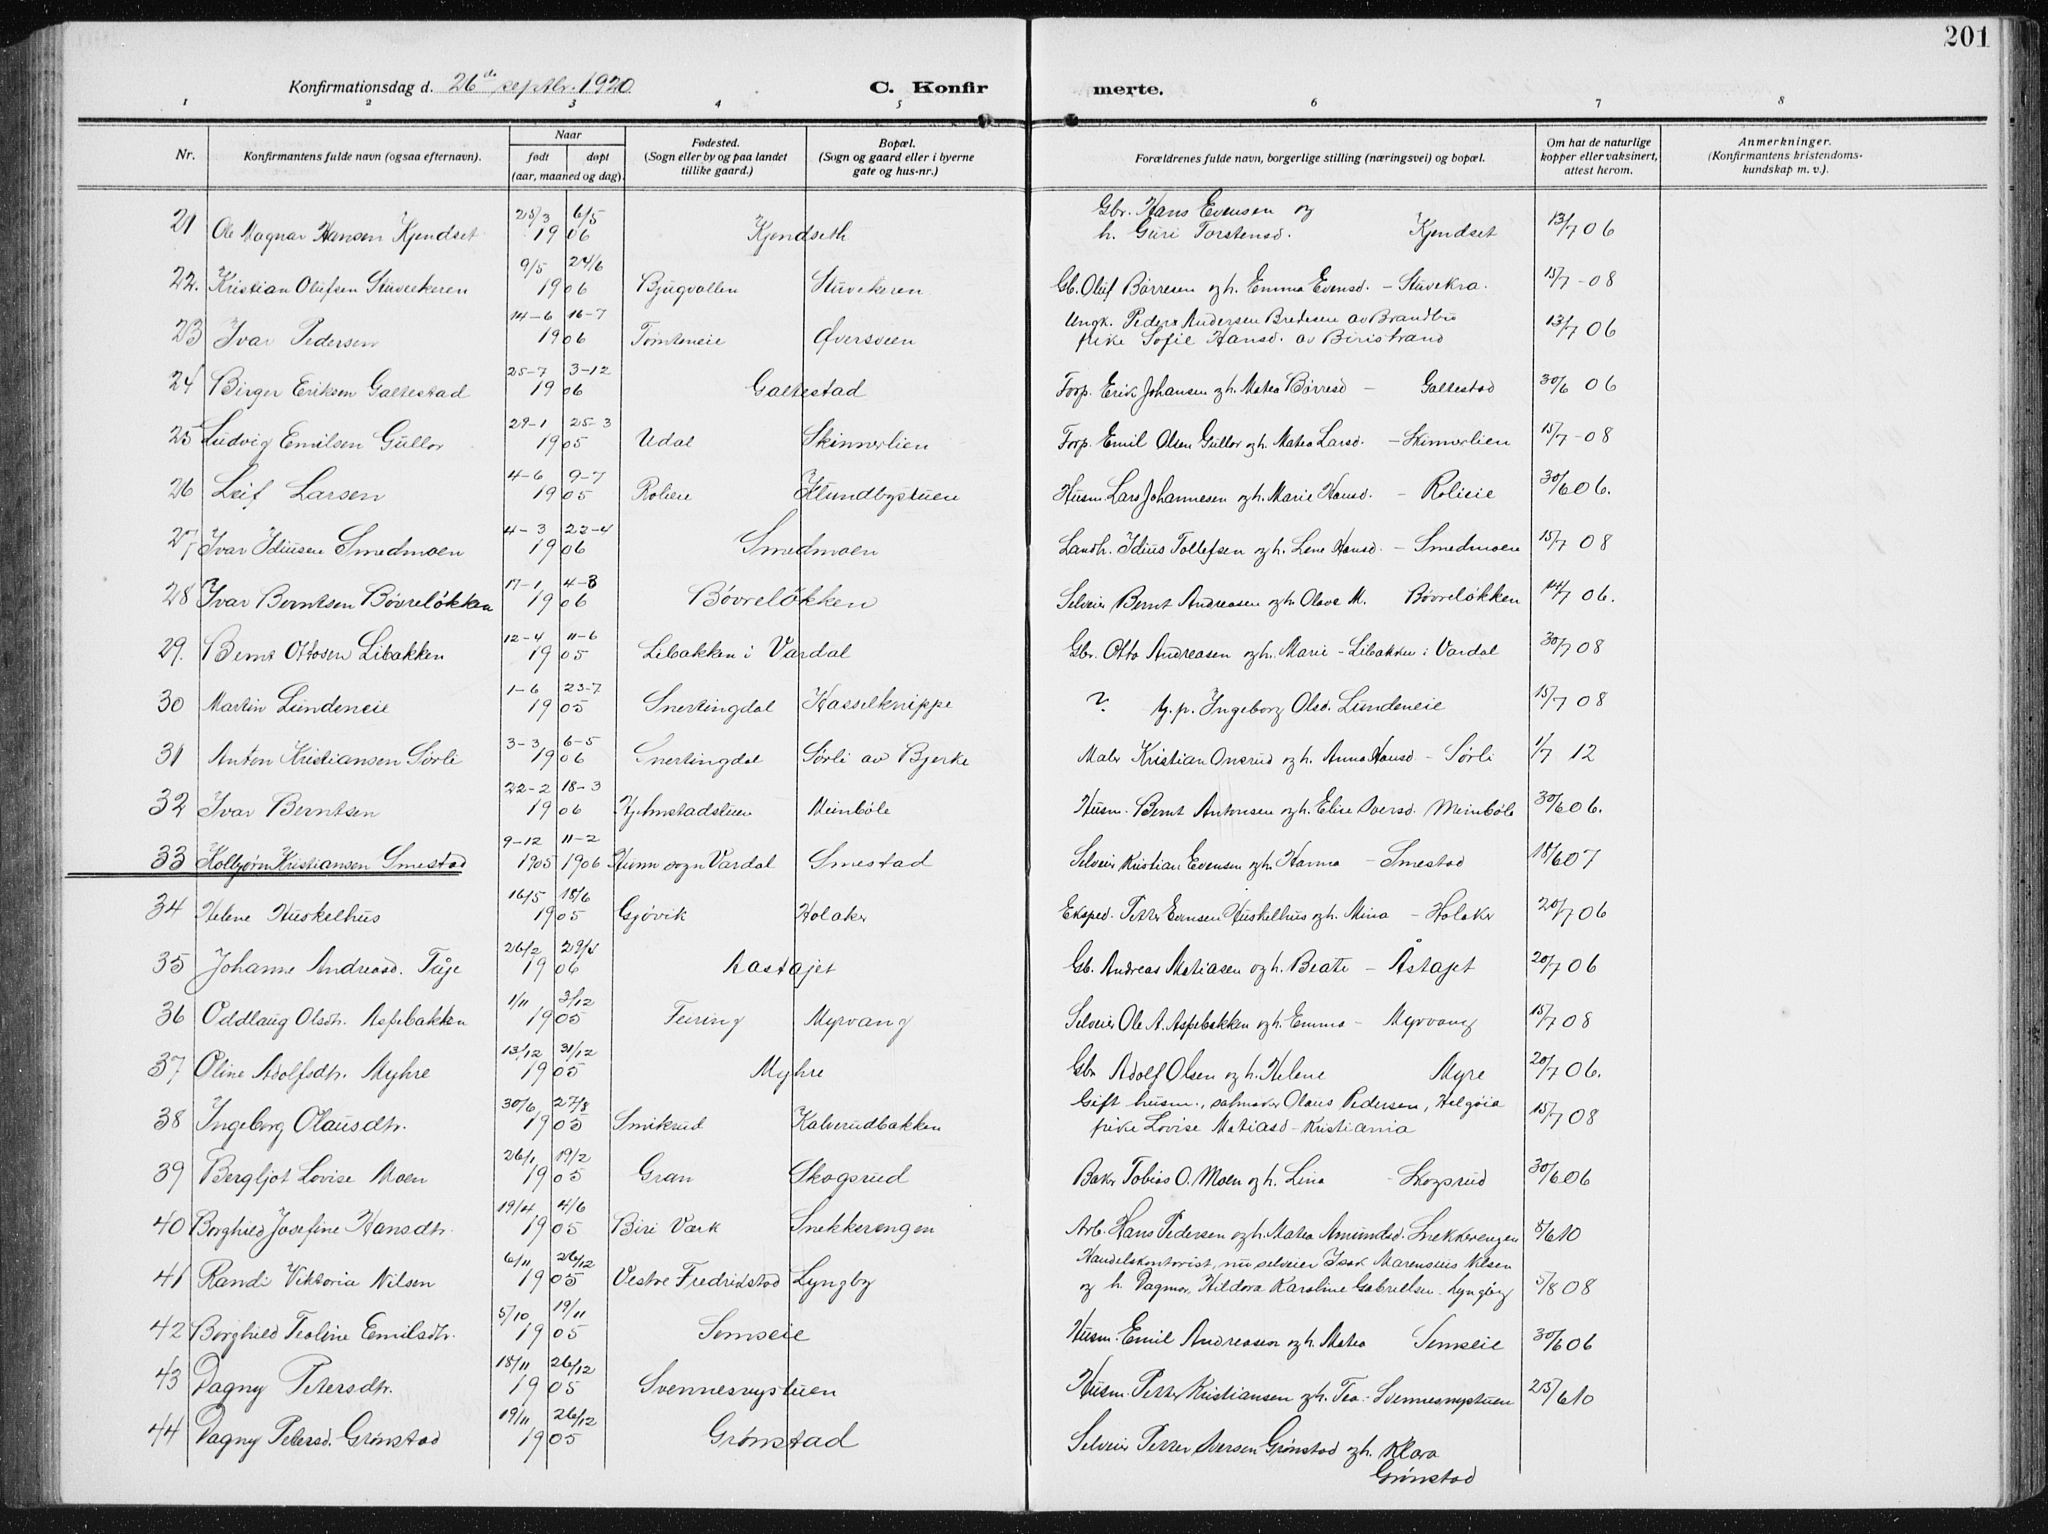 201
Konfirmationsdag d. 26de septbr. 1920 C. Konfir merte.
1 2 3 4 5 6 7 8
Nr. Konfirmantens fulde navn (ogsaa efternavn). Naar født døpt (aar, maaned og dag). Fødested. (Sogn eller by og paa landet tillike gaard.) Bopæl. (Sogn og gaard eller i byerne gate og hus-nr.) Forældrenes fulde navn, borgerlige stilling (næringsvei) og bopæl. Om hat de naturlige kopper eller vaksinert, attest herom. Anmerkninger. (Konfirmantens kristendomskundskap m. v.).
21 Ole Magnar Hansen Kjendset 25/3 6/5 1906 Kjendseth Gbr. Hans Evensen og h. Guri Torstensd. Kjendset 13/7 06
22. Kristian Olufsen Stuvekeren 9/5 24/6 1906 Bjugvollen Stuvekeren Gb. Oluf Børresen og h. Emma Evensd. – Stuvekra. 15/7 - 08
23 Ivar Pedersen 14-6 16-7 1906 Tømteneie Øversveen Ungk. Peder Andersen Bredesen av Brandbu pike Sofie Hansd. av Biristrand 13/7 06
24 Birger Eriksen Galtestad 25-7 3-12 1906 Galtestad Forp. Erik Johansen og h. Matea Børresd – Galtestad 30/6 06
25 Ludvig Emilsen Gullor 29-1 25-3 1905 Udal Skinnerlien Forp. Emil Olsen Gullor og h. Matea Larsd. – Skinnerlien 15/7 - 08
26 Leif Larsen 4-6 9-7 1905 Roleie Klundbystuen Husm. Lars Johannesen og h. Marie Hansd. – Rolieie 30/6 06.
27 Ivar Idiusen Smedmoen 4-3 22-4 1906 Smedmoen Landh. Idius Tollefsen og h. Lene Hansd. – Smedmoen 15/7 08
28 Ivar Berntsen Bøvreløkken 17-1 4-3 1906 Bøvreløkken Selveier Bernt Andreasen og h. Olava M. Bøvreløkken 14/7 06.
29. Bernt Ottosen Libakken 12-4 11-6 1905 Libakken i Vardal Gbr. Otto Andreasen og h. Marie – Libakken i Vardal 30/7 08
30 Martin Lundeneie 1-6 23-7 1905 Snertingdal Hasselknippe ? g. p. Ingeborg Olsd. Lundeneie 15/7 08
31 Anton Kristiansen Sørli 3-3 6-5 1906 Snertingdal Sørli av Bjerke Maler Kristian Onsrud og h. Anna Hansd – Sørli 1/7 12
32 Ivar Berntsen 22-2 18-3 1906 Hjelmstadstuen Meinbøle Husm. Bernt Antonsen og h. Elise Iversd. Meinbøle 30/6 06.
33 Kolbjørn Kristiansen Smestad 9-12 11-2 1905 1906 Hunn sogn Vardal Smestad Selveier Kristian Evensen og h. Hanna – Smestad 18/6 07
34 Helene Huskelhus 16/5 18/6 1905 Gjøvik Holaker Eksped. Petter Evensen Huskelhus og h. Mina – Holaker 20/7 06
35 Johanne Andreasd. Tåje 26/2 29/4 1906 Aastajet Gb. Andreas Matiasen og h. Beate – Åstajet 20/7 06
36 Oddlaug Olsdtr. Aspebakken 1/11 3/12 1905 Feiring Myrvang Selveier Ole A. Aspebakken og h. Emma – Myrvang 15/7 08
37 Oline Adolfsdtr. Myhre 13/12 31/12 1905 Myhre Gbr Adolf Olsen og h. Helene Myre 20/7 06.
38 Ingeborg Olausdtr. 30/6 27/8 1905 Smikrud Kalverudbakken Gift husm., salmaker Olaus Pedersen, Helgøia pike Lovise Matiasd – Kristiania 15/7 08
39 Bergljot Lovise Moen 26/1 19/2 1905 Gran Skogsrud Baker Tobias O. Moen og h. Lina – Skogsrud 30/6 06
40 Borghild Josefine Hansdtr. 19/4 4/6 1905 Biri Værk Snekkerengen Arb. Hans Pedersen og h. Matea Amundsd. Snekkerengen 5/6 10
41 Randi Viktoria Nilsen 6/11 26/12 1905 Vestre Fredrikstad Lyngby Handelskontorist, nu selveier Isak Marensius Nilsen og h. Dagmar Hildora Karoline Gabrielsen. Lyngby 5/8 08
42 Borghild Teoline Emilsdtr. 5/10 19/11 1905 Semseie Husm. Emil Andreasen og h. Matea Semseie 30/6 06
43 Dagny Petersdtr. 18/11 26/12 1905 Svennesnystuen Husm. Petter Kristiansen og h. Tea – Svennesnystuen 25/6 10
44 Dagny Petersd. Grønstad 19/11 26/12 1905 Grønstad Selveier Petter Iversen Grønstad og h. Klara Grønstad